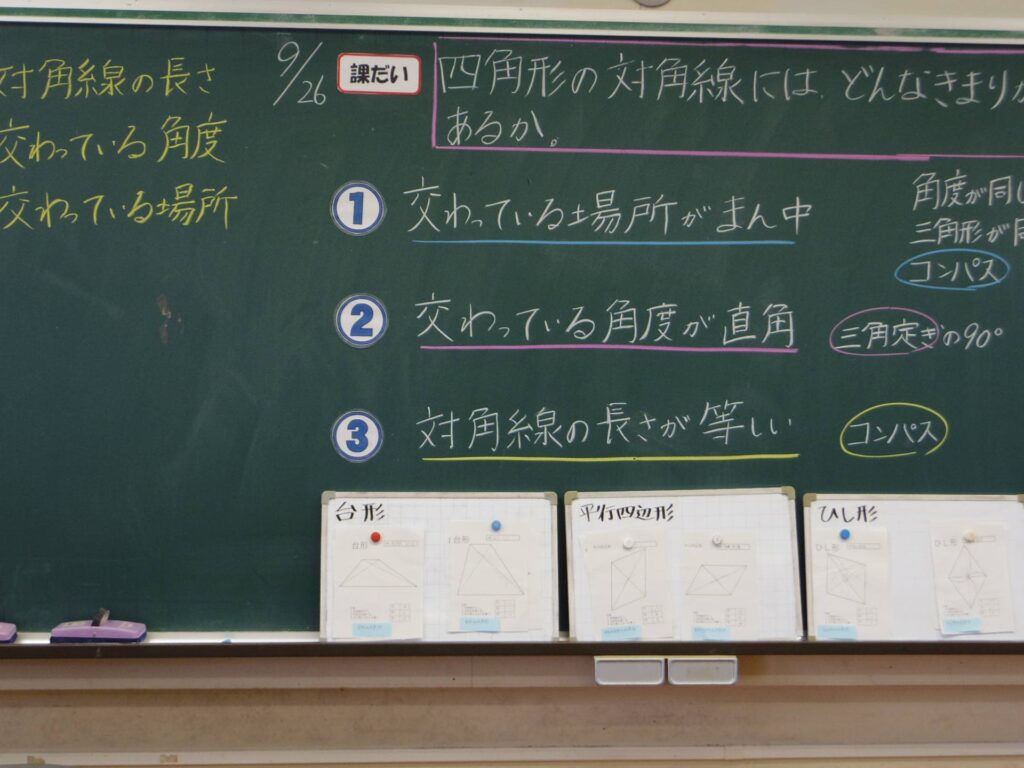 対角線の長さ
交わっている角度
交わっている場所
9/26
課だい
四角形の対角線には、どんなきまりが
あるか。
1 交わっている場所がまん中
角度が同じ
三角形が同
コンパス
2 交わっている角度が直角
三角定ぎの90°
3 対角線の長さが等しい
コンパス
台形
台形
台形
平行四辺形
ひし形
ひし形
ひし形